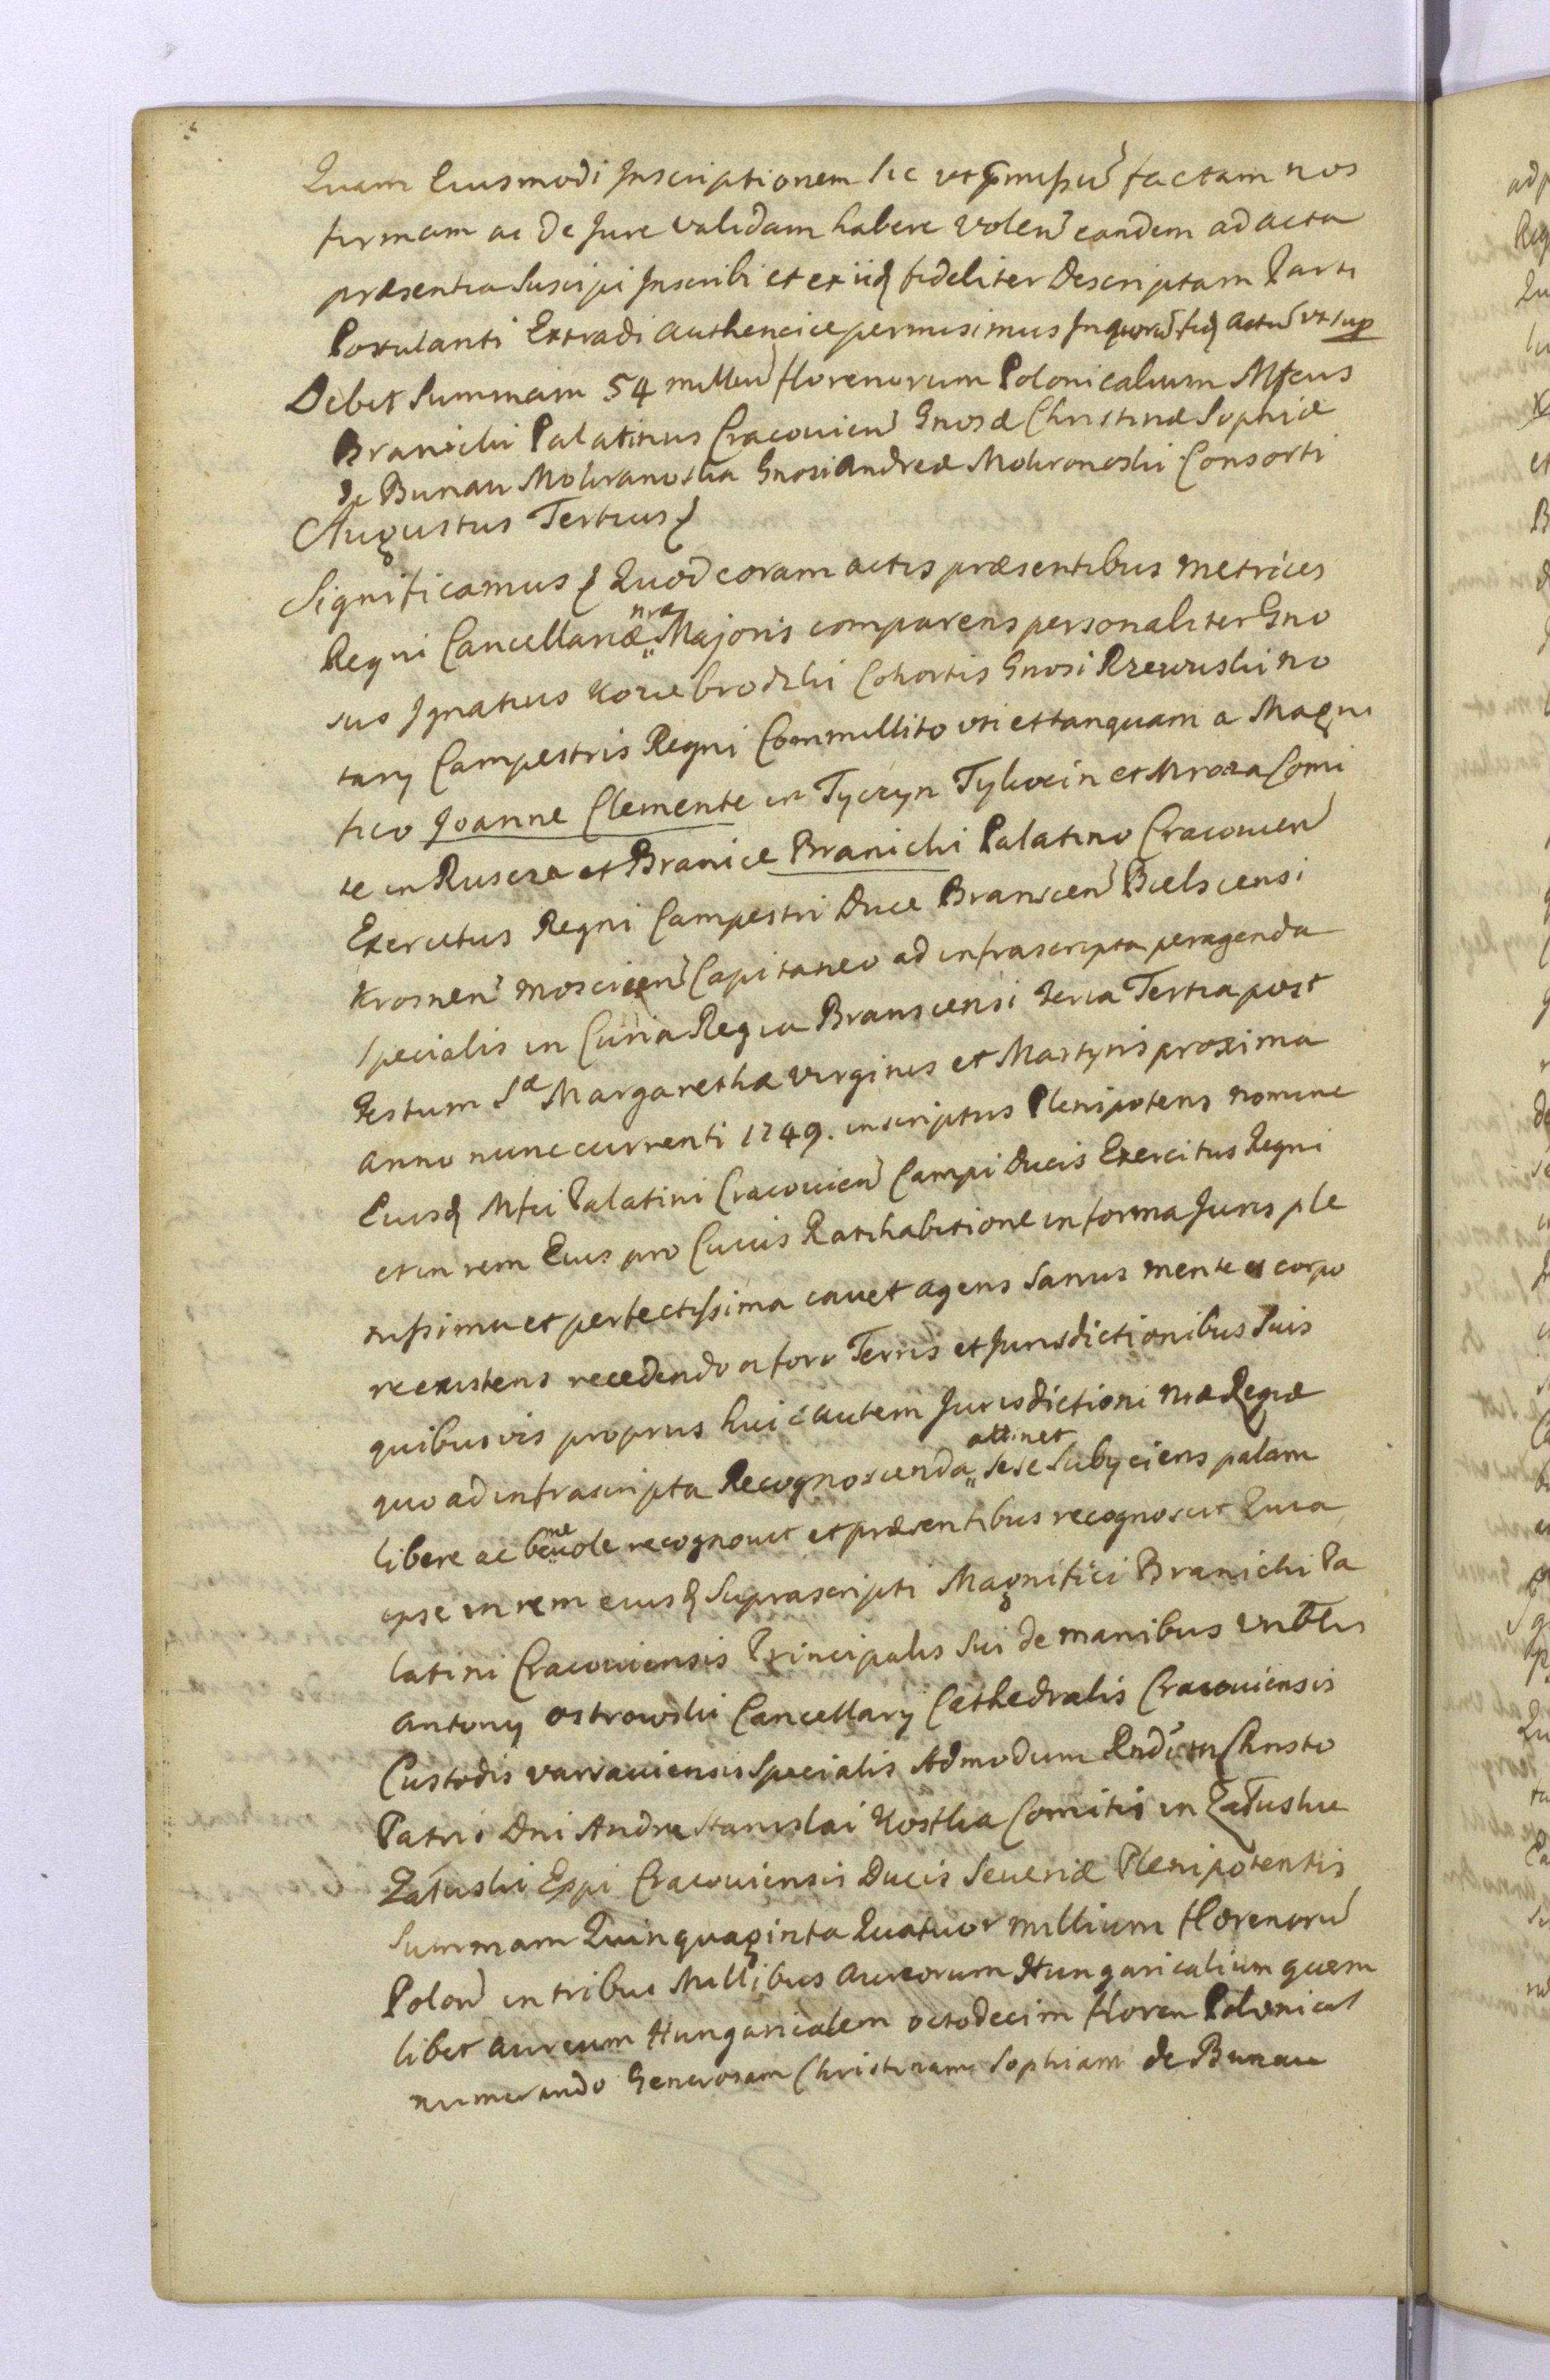 Quam Eiusmodi Inscriptionem sic ut praemissum factam nos
firmam ac de Jure validam habere volen eandem ad acta
præsentia Suscipi Inscribi et ex iisdq fideliter Descriptam Parti
Postulanti Extradi authentice permisimus In quorum fid actu ut sup
Debit Summam 54 milliu florenorum Polonicalium Mfcus
Branicki Palatinus Cracovien Gnosæ Christinæ Sophiæ
de Bunau Mokranoska Gnosi Andreæ Mokronoski Consorti
Augustus Tertius
Significamus Quod coram actis præsentibus metrices
Regni Cancellariæ nræ Majoris comparens personaliter Gno
sus Ignatius Koziebrodzki Cohortis Gnosi Rzewuski no
tarij Campestris Regni Commilito uti et tanquam a Magni
fico Joanne Clemente in Tyczyn Tykocin et Mroza Comi
te in Ruscza et Branice Branicki Palatino Cracovien
Exercitus Regni Campestri Duce Branscen Bielscensi
Krosnen moscicen Capitaneo ad infrascripta peragenda
specialis in Curia Regia Branscensi feria Tertia post
festum Sæ Margarethæ virginis et Martyris proxima
anno nunc currenti 1749. inscriptus Plenipotens nomine
Eiusdq Mfci Palatini Cracovien Campi Ducis Exercitus Regni
et in rem Eius pro Cuius Ratihabitione in forma Juris ple
nissima et perfectissima cavet agens Sanus mente et corpo
re existens recedendo a foro Terris et Jurisdictionibus Suis
quibusvis proprys huic autem Jurisdictioni nræ Regiæ
quo ad infrascripta Recognoscenda attinet sese Subijciens palam
libere ac benevole recognovit et præsentibus recognoscit Quia
ipse in rem eiusdq Suprascripti Magnifici Branicki Pa
latini Cracoviensis Principalis Sui de manibus
Antony Ostrowski Cancellary Cathedralis Cracoviensis
Custodis varsaviensis Specialis Admodum Rndi in Christo
Patris Dni Andreæ Stanislai Kostka Comitis in Załuskie
Załuski Eppi Cracoviensis Ducis Severiæ Plenipotentis
Summam Quinquaginta Quatuor millium florenoru
Polon in tribus Millibus aureorum Hungaricalium quem
libet aureum Hungaricalem octodecim floren Polonical
numerando Generosam Christinam Sophiam de Bunau